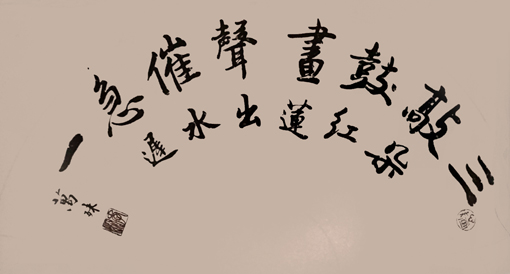 三敲鼓畫聲催急一
朵紅蓮出水遲